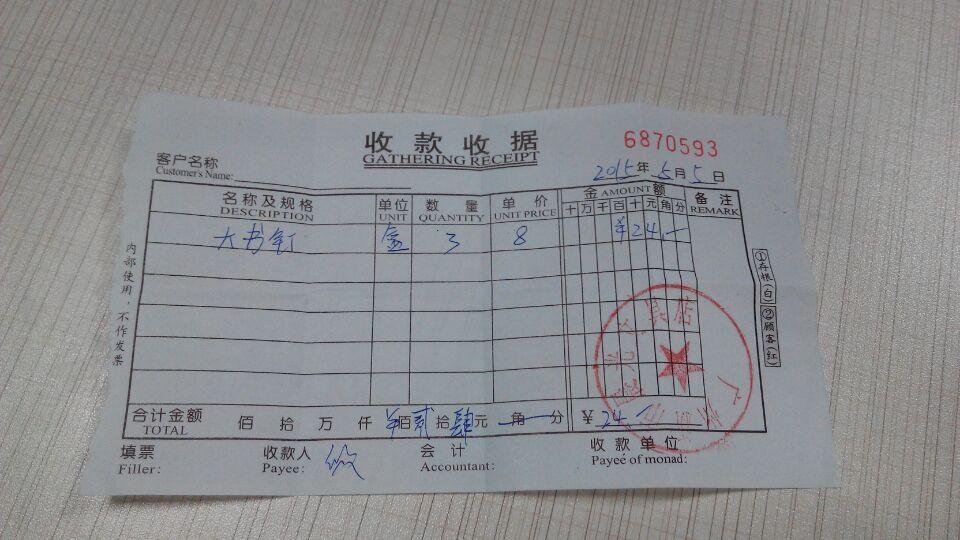 收款收据
GATHERING RECEIPT
6870593
客户名称
Customer's Name:
2015年5月5日
名称及规格 单位 数量 单价 金 AMOUNT 额 备注
DESCRIPTION UNIT QUANTITY UNIT PRICE 十万千百十元角分 REMARK
大书钉 盒 3 8 ¥24.-
内部使用,不作发票
①存根(白)②顾客(红)
合计金额 佰拾万仟 ¥佰贰拾肆元角分 ¥24.-
TOTAL
填票 收款人 会计 收款单位
Filler: Payee: Accountant: Payee of monad: